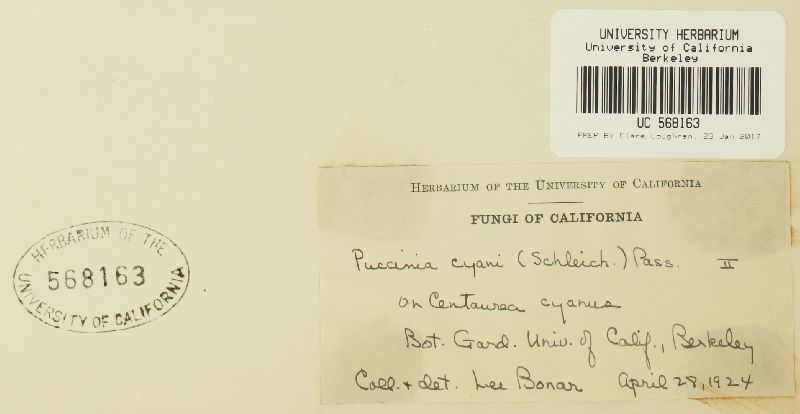 UNIVERSITY HERBARIUM
University of California
Berkeley
UC 568163
PREP BY Clare Loughran, 23 Jan 2017
HERBARIUM OF THE UNIVERSITY OF CALIFORNIA
FUNGI OF CALIFORNIA
Puccinia cyani (Schleich.) Pass. II
on Centaurea cyanus
Bot. Gard. Univ. of Calif., Berkeley
Coll. + det. Lee Bonar April 28, 1924
HERBARIUM OF THE
568163
UNIVERSITY OF CALIFORNIA